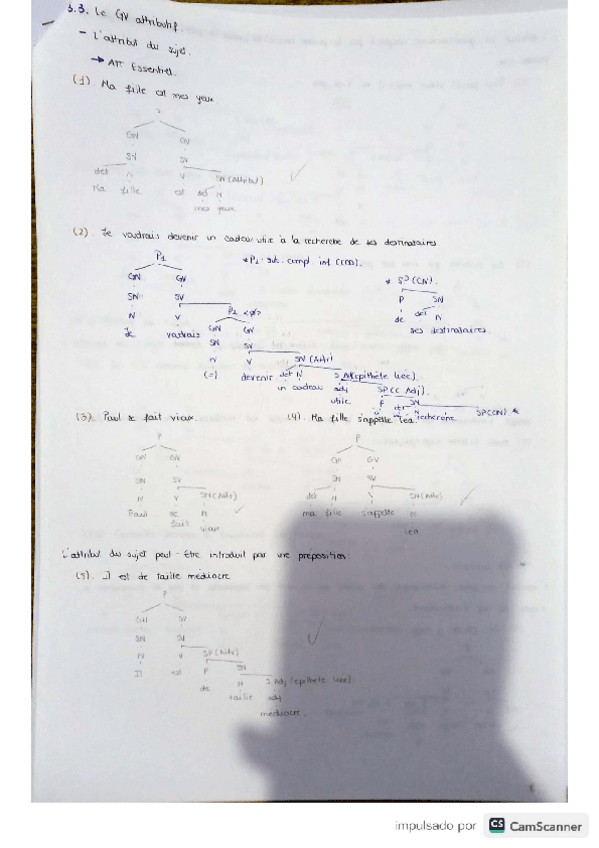 3.3. Le GV attributif.
- L'attribut du sujet.
→ ATT Essentiel.
(1) Ma fille est mes yeux
P
GN GV
SN SV
det N V SN (Attribut)
Ma fille est det N
mes yeux
(2). Je voudrais devenir un cadeau utile à la recherche de ses destinataires
P1 * P2: sub. compl inf (COD).
GN GV
SN SV
N V P2 <Ø>
Je voudrais GN GV
SN SV
N V SN (Attr)
(=) devenir det N S.Adj (epithète liée)
un cadeau adj SP (C Adj)
utile P SN
det N SP(CN) *
recherche
* SP (CN).
P SN
de det N
ses destinataires
(3) Paul se fait vieux
P
GN GV
SN SV
N V SN (Attr)
Paul se fait N
vieux
(4). Ma fille s'appelle Lea.
P
GN GV
SN SV
det N V SN (Attr)
ma fille s'appelle N
Lea
L'attribut du sujet peut être introduit par une préposition:
(5). Il est de taille médiocre
P
GN GV
SN SV
N V SP (Attr)
Il est P SN
de N S.Adj (epithète liée)
taille adj
médiocre.
impulsado por CS CamScanner